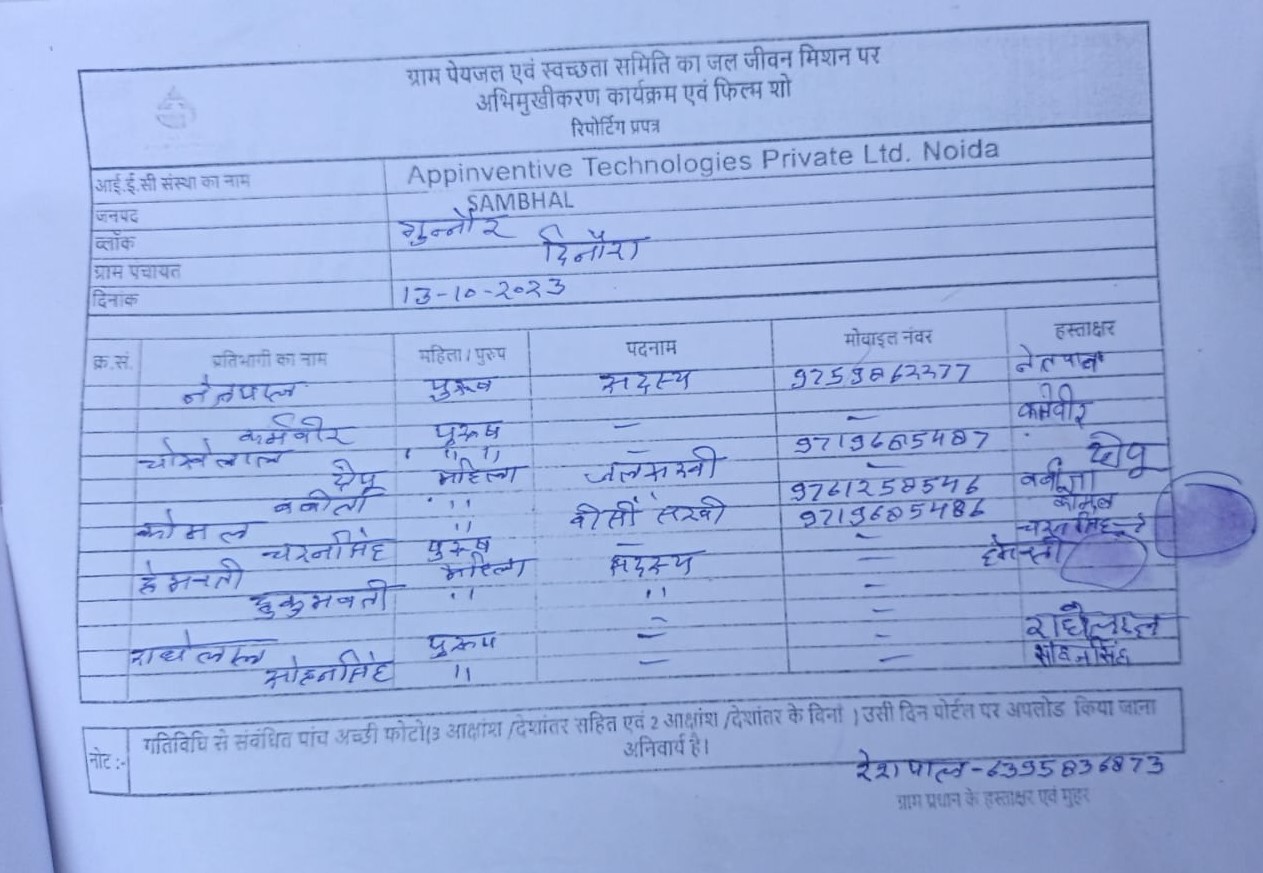 ग्राम पेयजल एवं स्वच्छता समिति का जल जीवन मिशन पर
अभिमुखीकरण कार्यक्रम एवं फिल्म शो
रिपोर्टिंग प्रपत्र
आई.ई.सी संस्था का नाम Appinventive Technologies Private Ltd. Noida
जनपद SAMBHAL
ब्लॉक गुन्नौर
ग्राम पंचायत दिनौरा
दिनाक 13-10-2023
क्र.सं. प्रतिभागी का नाम महिला / पुरुष पदनाम मोबाइल नंबर हस्ताक्षर
नेतपाल पुरूष सदस्य 9259862277 नेतपाल
कर्मवीर पुरूष – – कर्मवीर
चोखेलाल '' '' – 9719685487
दीपू महिला जलसखी – दीपू
बबीता '' 9761258546 बबीता
कोमल '' बीसी सखी 9719685486 कोमल
चरनसिंह पुरूष – – चरनसिंह
हेमवती महिला सदस्य – हेमवती
हुकुमवती '' '' –
राधेलाल पुरूष – – राधेलाल
सोहनसिंह '' – – सोहनसिंह
नोट :- गतिविधि से संबंधित पांच अच्छी फोटो(3 आक्षांश /देशांतर सहित एवं 2 आक्षांश /देशांतर के विना ) उसी दिन पोर्टल पर अपलोड किया जाना
अनिवार्य है।
रेशपाल-6395836873
ग्राम प्रधान के हस्ताक्षर एवं मुहर